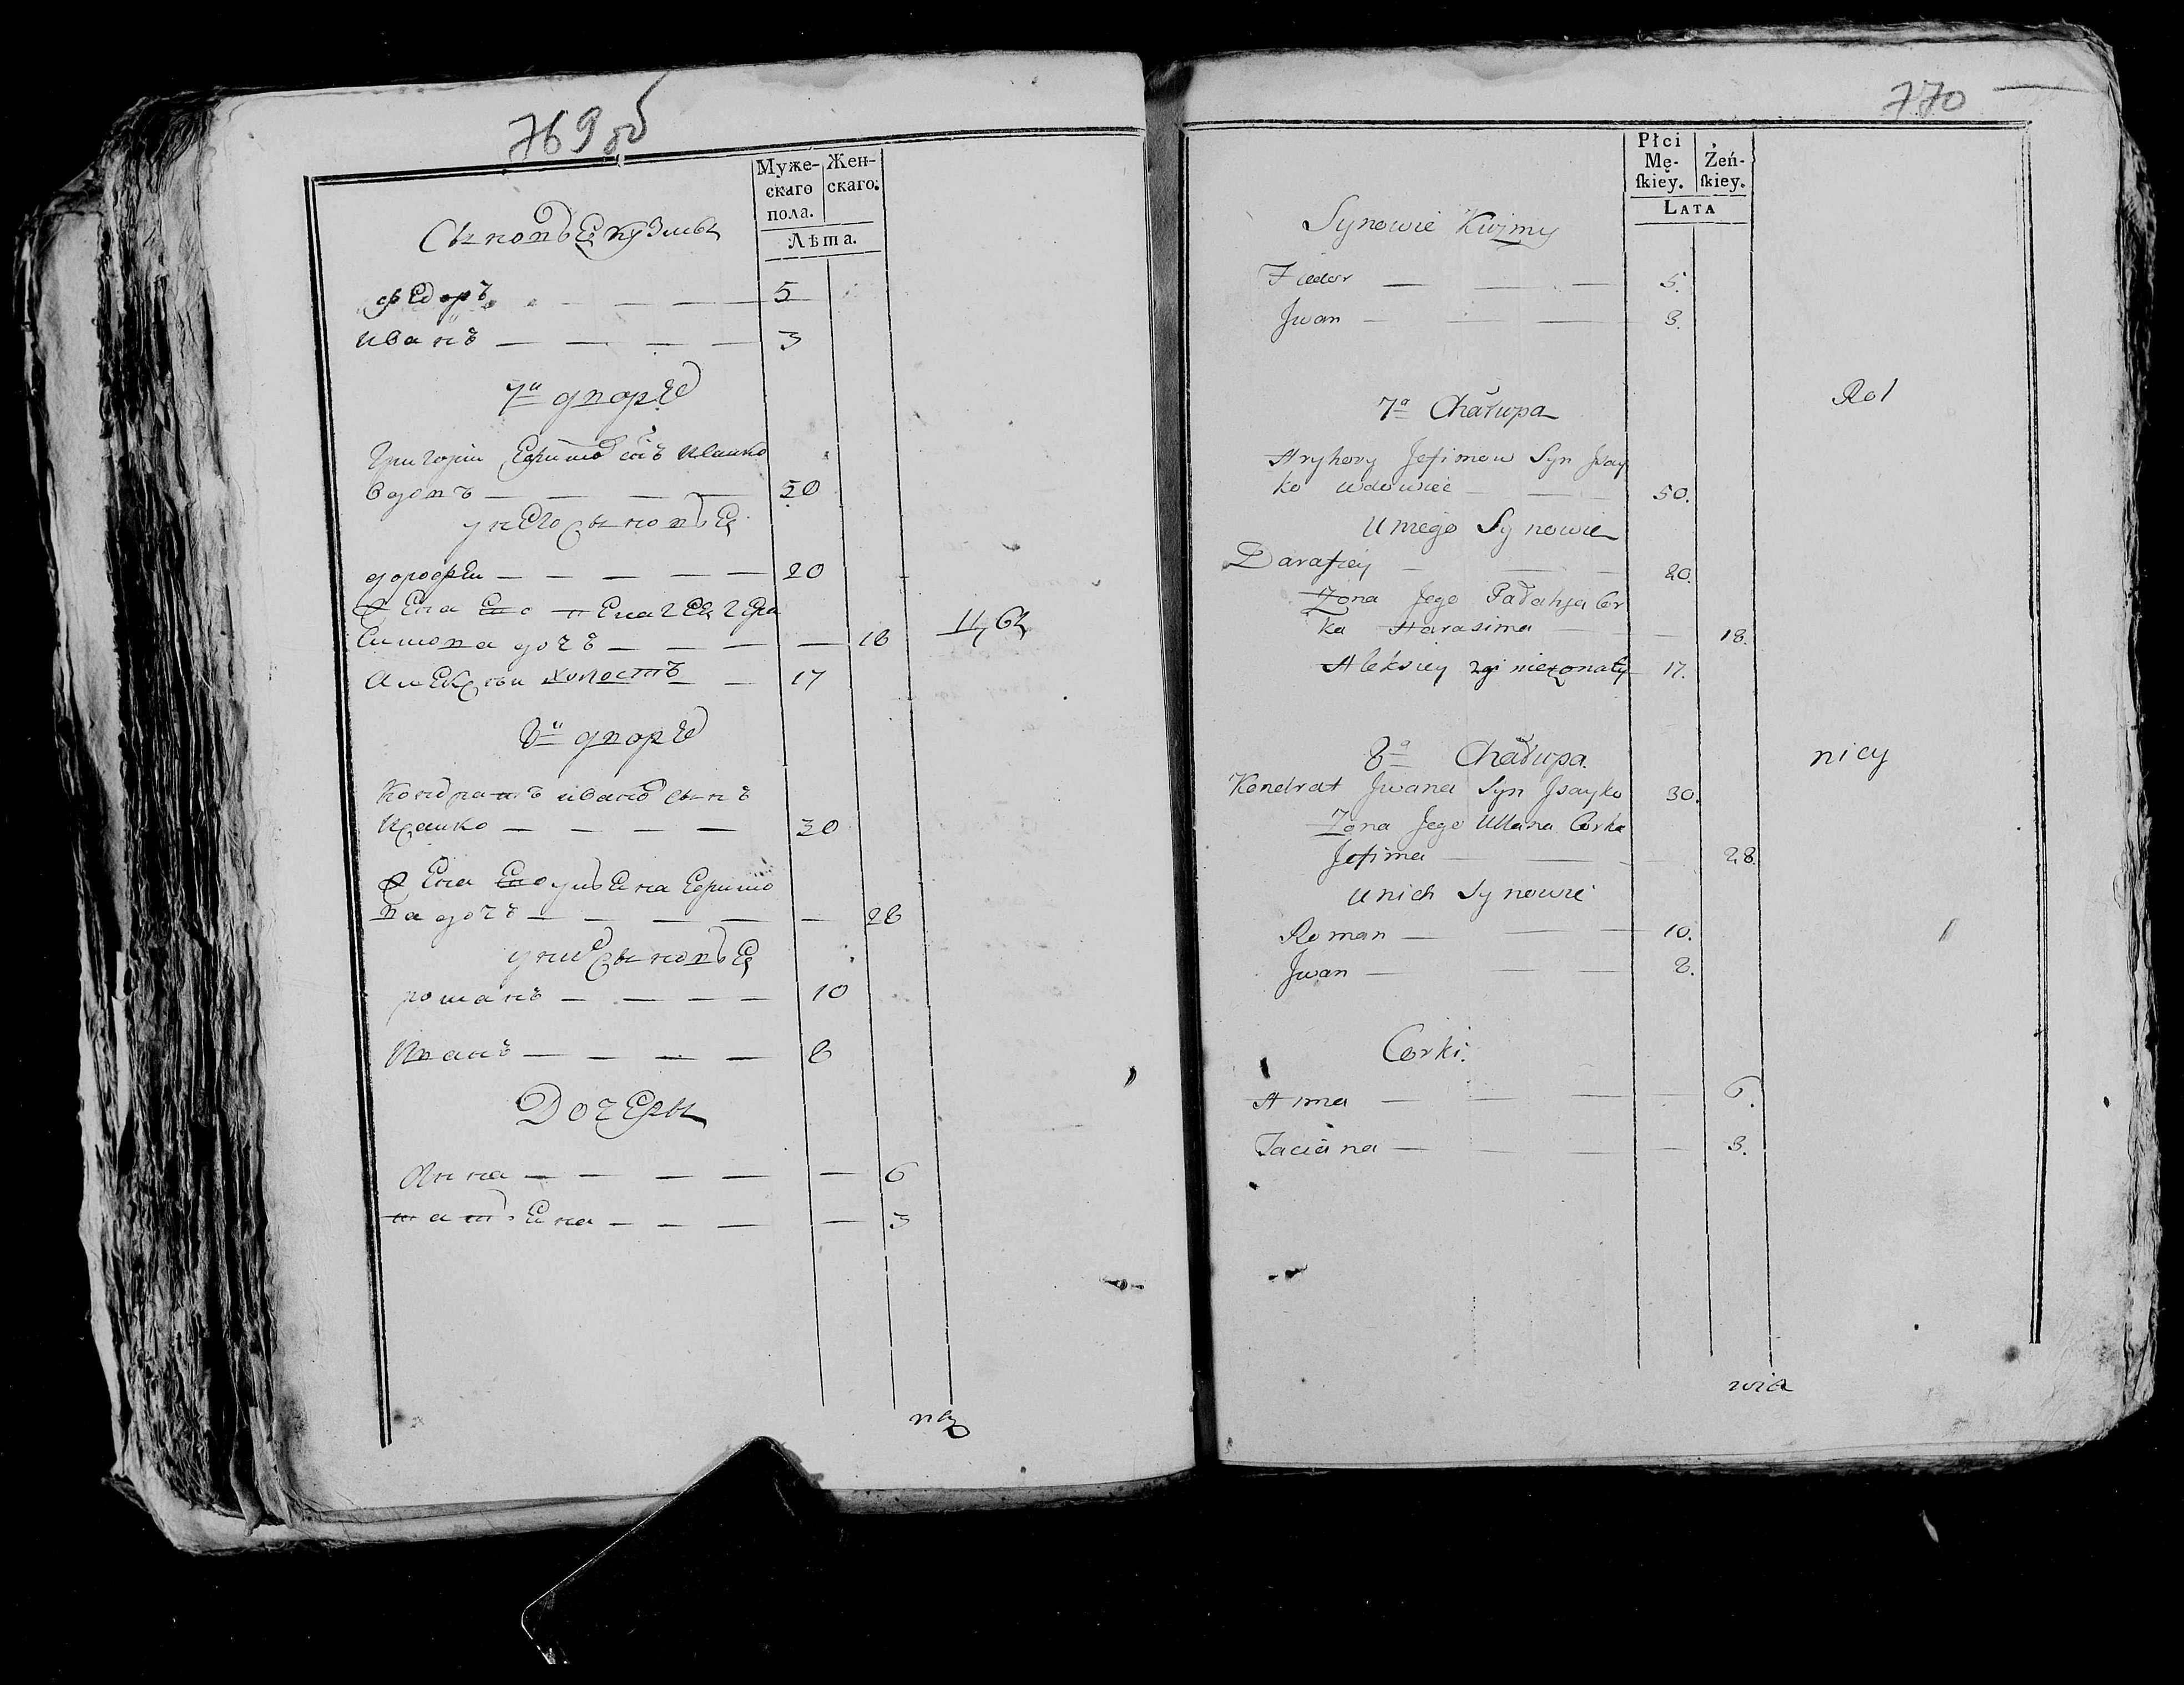 769 об
Муже-
скаго
пола.
Жен-
скаго.
Лѣта.
Сыновье кузмы
Федоръ — — — — 5
иванъ — — — — 3
7й дворъ
Григорiи Ефимов сынъ исаико
вдовъ — — — — 50
у него сыновье
дорофеи — — — — — 20
жена его пелагея гера
симова дочъ — — — — 18
11,62
Алексеи холостъ — 17
8й дворъ
Кондратъ иванов сынъ
Исаико — — — — 30
жена его ульена Ефимо
ва дочъ — — — — — 28
у них сыновье
романъ — — — — 10
Иванъ — — — — 8
Дочеры
Анна — — — — — 6
татьена — — — — 3
770
Płci
Mę-
ſkiey.
Żeń-
ſkiey.
LATA
Synowie Kuzmy
Fiedor — — — 5.
Jwan — — — 3.
7a Chałupa
Rol
Hryhory Jefimow Syn Jsay
ko wdowiec — — 50.
U niego Synowie
Darafiey — — — 20.
Żona Jego Pałahja Cor
ka Harasima — — 18.
Aleksiey nieżonaty 17.
8a Chałupa.
nicy
Kondrat Jwana Syn Jsayko 30.
Żona Jego Ullana Corka
Jefima — — — 28.
U nich Synowie
Roman — — — 10.
Jwan — — — 8.
Corki.
Anna — — — — 6.
Taciana — — — — 3.